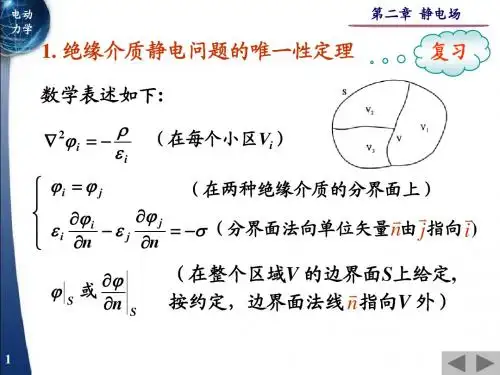 电动
力学
第二章 静电场
1. 绝缘介质静电问题的唯一性定理
复习
数学表述如下:
∇²φᵢ = −ρ/εᵢ （在每个小区Vᵢ）
S
V₂
V₁
V
V₃
φᵢ = φⱼ （在两种绝缘介质的分界面上）
εᵢ ∂φᵢ/∂n − εⱼ ∂φⱼ/∂n = −σ （分界面法向单位矢量n⃗由j⃗指向i⃗）
φ|S 或 ∂φ/∂n|S （在整个区域V 的边界面S上给定,
按约定，边界面法线n⃗指向V 外）
1